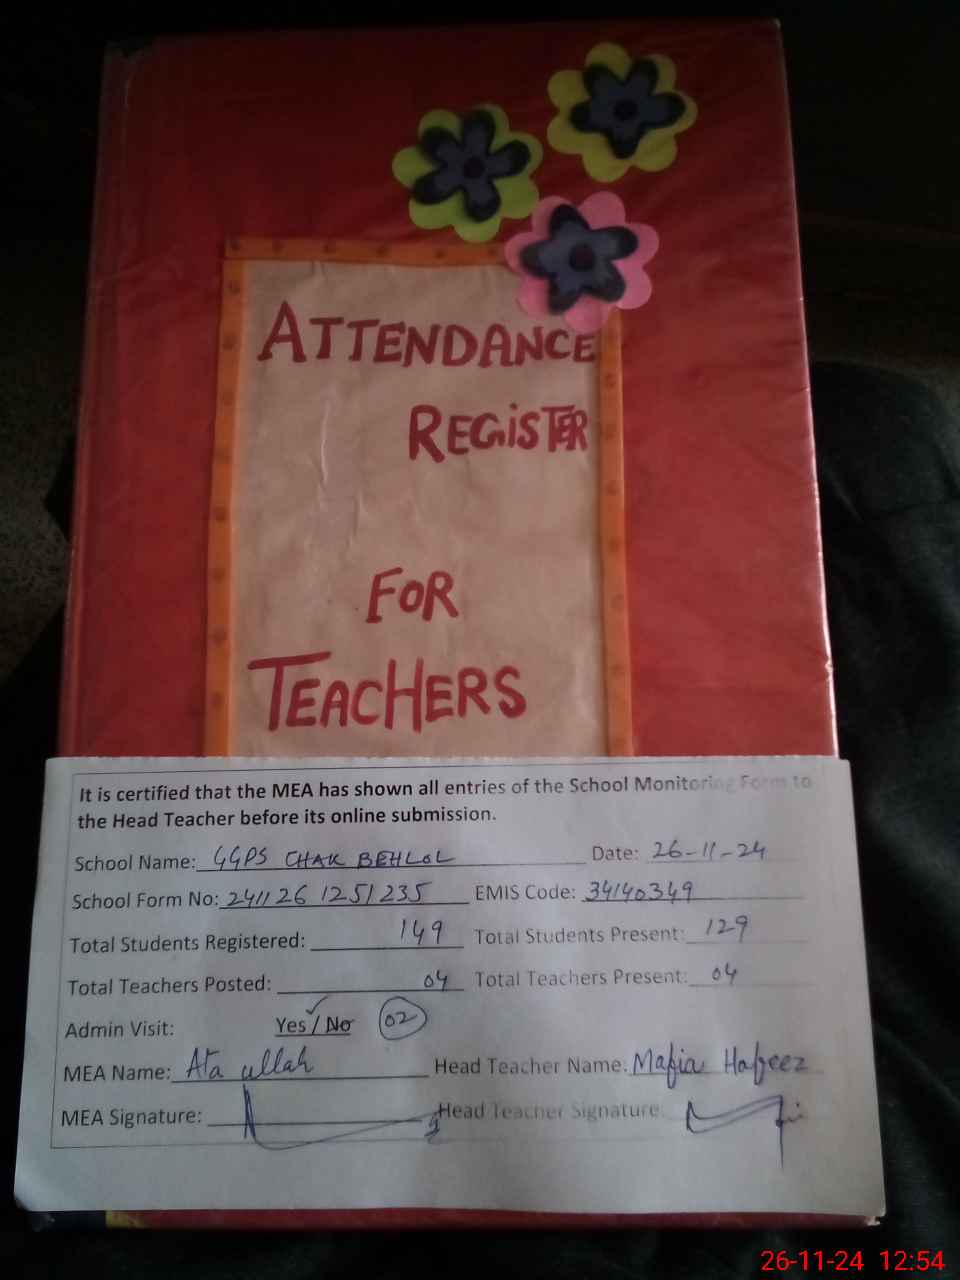 ATTENDANCE
REGISTER
FOR
TEACHERS
It is certified that the MEA has shown all entries of the School Monitoring Form to
the Head Teacher before its online submission.
School Name: GGPS CHAK BEHLOL Date: 26-11-24
School Form No: 241126 1251235 EMIS Code: 34140349
Total Students Registered: 149 Total Students Present: 129
Total Teachers Posted: 04 Total Teachers Present: 04
Admin Visit: Yes / No 02
MEA Name: Ata ullah Head Teacher Name: Mafia Hafeez
MEA Signature: Head Teacher Signature:
26-11-24 12:54